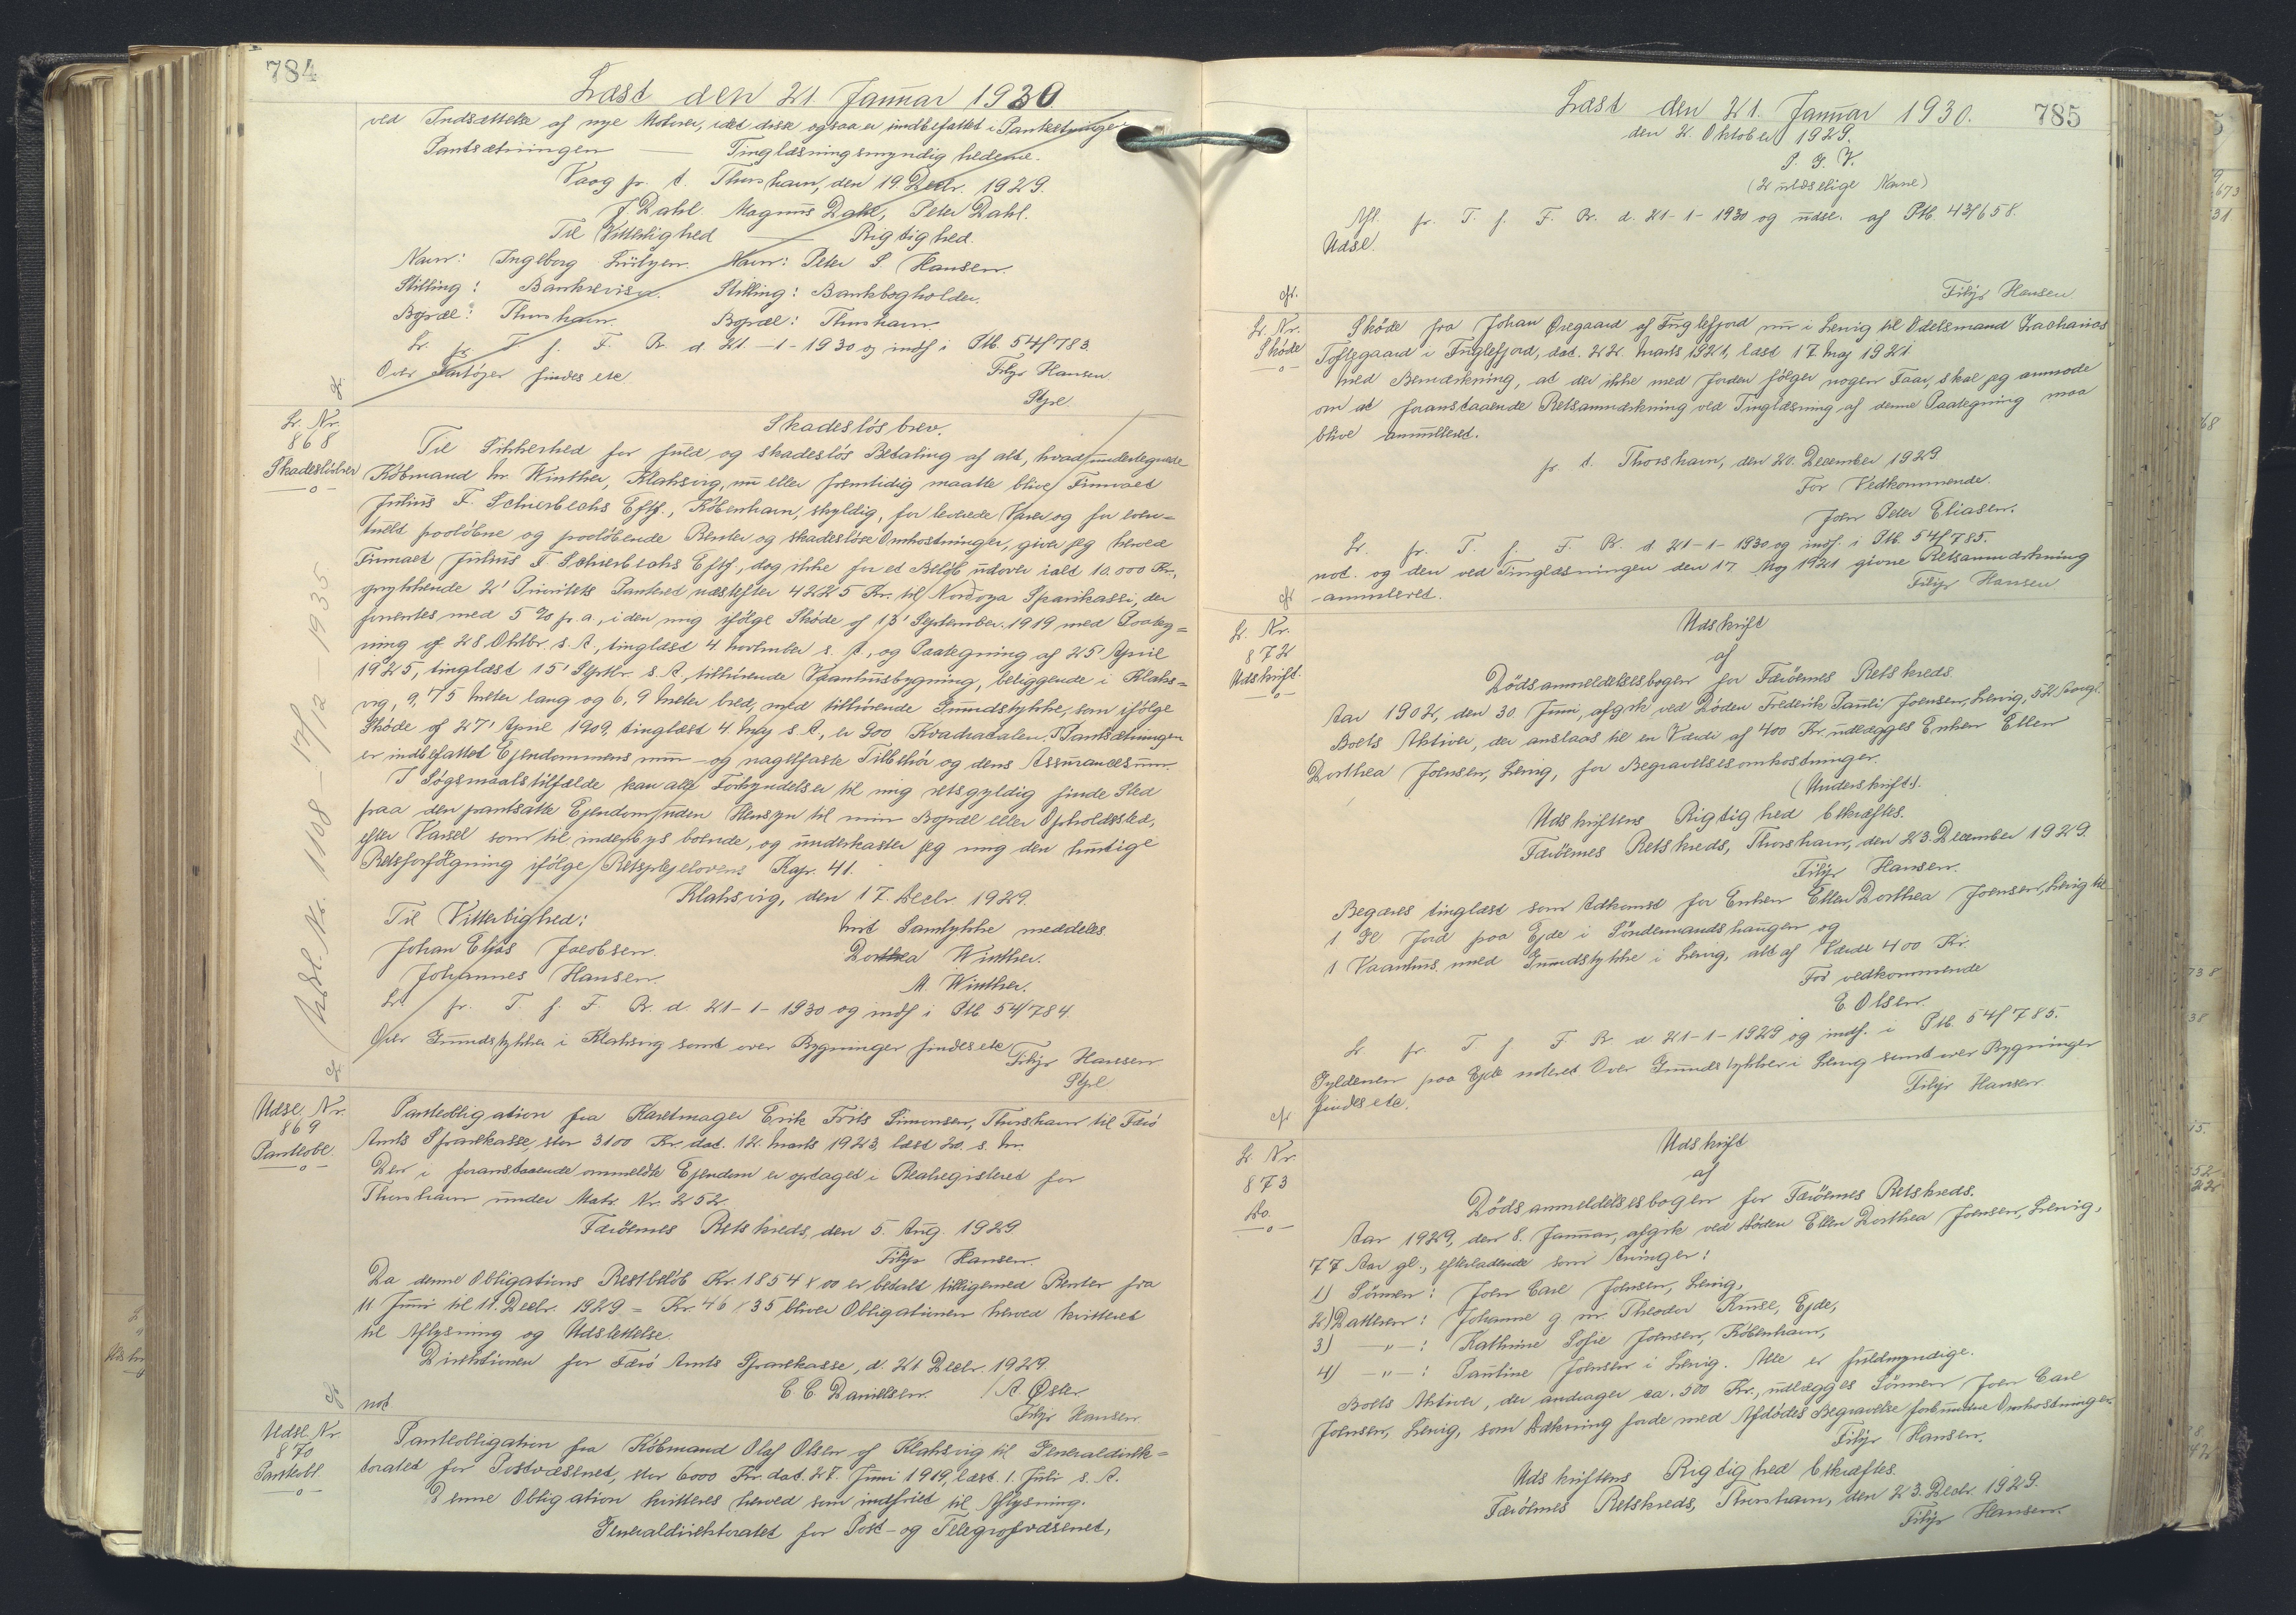 784
Læst den 21. Januar 1930.
ved Indsættelse af nye Motorer, idet disse ogsaa er indbefattet i Pantsætningen
Pantsætningen — Tinglæsningsmyndighederne.
Vaag pr. t. Thorshavn, den 19. Decbr. 1929.
J. Dahl. Magnus Dahl, Peter Dahl.
Til Vitterlighed — Rigtighed.
Navn: Ingeborg Lützen. Navn: Peter S. Hansen.
Stilling: Bankrevisor. Stilling: Bankbogholder.
Bopæl: Thorshavn. Bopæl: Thorshavn.
Lr. pr. T. f. F. R. d. 21.-1-1930 og indf i Ptb. 54/783.
Over Fartøjer findes etc.
Filip Hansen
Stpl.
cfr.
Lr. Nr.
868
Skadesløsbrev
—o—
Skadesløsbrev.
Til Sikkerhed for fuld og skadesløs Betaling af alt, hvad undertegnede
Købmand M. Winther, Klaksvig, nu eller fremtidig maatte blive Firmaet
Julius F. Schierbecks Eftf., København, skyldig, for leverede Varer og for even=
tuelt paaløbne og paaløbende Renter og skadesløse Omkostninger, giver jeg herved
Firmaet Julius F. Schierbecks Eftf., dog ikke for et Beløb udover ialt 10.000 Kr.,
rykkende 2' Prioritets Panteret næstefter 4225 Kr. til Nordoya Sparikassi, der
forrentes med 5 % p. a., i den mig ifølge Skøde af 13' September 1919 med Paateg=
ning af 28 Oktbr. s. A., tinglæst 4. November s. A., og Paategning af 25' April
1925, tinglæst 15' Septbr. s. A. tilhørende Vaanhusbygning, beliggende i Klaks=
vig, 9,75 Meter lang og 6,9 Meter bred, med tilhørende Grundstykke, som ifølge
Skøde af 27' April 1909, tinglæst 4. Maj s. A., er 900 Kvadratalen. I Pantsætningen
er indbefattet Ejendommens mur- og nagelfaste Tilbehør og dens Assurancesum.
I Søgsmaalstilfælde kan alle Forkyndelser til mig retsgyldig finde Sted
paa den pantsatte Ejendom uden Hensyn til min Bopæl eller Opholdssted,
efter Varsel som til indenbys boende, og underkaster jeg mig den hurtige
Retsforfølgning ifølge Retsplejelovens Kap. 41.
Klaksvig, den 17. Decbr. 1929.
Til Vitterlighed: Mit Samtykke meddeles
Johan Eljas Jacobsen. Dorthea Winther.
Johannes Hansen. M. Winther.
Lr. pr. T. f. F. R. d. 21-1-1930 og indf i Ptb. 54/784.
Over Grundstykker i Klaksvig samt over Bygninger findes etc.
Filip Hansen
Stpl
cfr.
Udsl. Nr. 1108 - 17/12 - 1935
Udsl. Nr.
869
Panteobl.
—o—
Panteobligation fra Karetmager Erik Frits Simonsen, Thorshavn til Færø
Amts Sparekasse, stor 3100 Kr. dat. 12. Marts 1923, læst 20. s. M.
Den i foranstaaende ommeldte Ejendom er optaget i Realregisteret for
Thorshavn under Matr. Nr. 252
Færøernes Retskreds, den 5. Aug. 1929
Filip Hansen.
Da denne Obligations Restbeløb Kr. 1854 x 00 er betalt tilligemed Renter fra
11 Juni til 11. Decbr. 1929 = Kr. 46 x 35 bliver Obligationen herved kvitteret
til Aflysning og Udslettelse.
Direktionen for Færø Amts Sparekasse, d. 21 Decbr. 1929.
C. C. Danielsen. / A. Øster.
not.
Filip Hansen
cfr
Udsl. Nr.
870
Panteobl.
—o—
Panteobligation fra Købmand Olaf Olsen af Klaksvig til Generaldirek=
toratet for Postvæsenet, stor 6000 Kr. dat. 27. Juni 1919, læst 1. Juli s. A.
Denne Obligation kvitteres herved som indfriet til Aflysning.
Generaldirektoratet for Post- og Telegrafvæsenet,
785
Læst den 21. Januar 1930.
den 2. Oktober 1929.
P. G. V.
(2 ulæselige Navne)
Afl. pr. T. f. F. R. d. 21-1-1930 og udsl. af Ptb. 43/658.
Udsl.
Filip Hansen
cfr.
Lr. Nr.
Skøde
—o—
Skøde fra Johan Øregaard af Fuglefjord nu i Lervig til Odelsmand Zacharias
Toftegaard i Fuglefjord, dat. 22. Marts 1921, læst 17. Maj 1921
med Bemærkning, at der ikke med Jorden følger nogen Faar, skal jeg anmode
om at foranstaaende Retsanmærkning ved Tinglæsning af denne Paategning maa
blive annulleret.
pr. t. Thorshavn, den 20. December 1929
For Vedkommende.
Joen Peter Eliasen.
Lr. pr. T. f. F. R. d. 21-1-1930 og indf. i Ptb. 54/785.
not. og den ved Tinglæsningen den 17. Maj 1921 givne Retsanmærkning
annulleret.
Filip Hansen
cfr
Lr. Nr.
872
Udskrift.
—o—
Udskrift
af
Dødsanmeldelsesbogen for Færøernes Retskreds.
Aar 1902, den 30. Juni, afgik ved Døden Frederik Pauli Joensen, Lervig, 52 Aar gl.
Boets Aktiver, der anslaas til en Værdi af 400 Kr. udlægges Enken Ellen
Dorthea Joensen, Lervig, for Begravelsesomkostninger.
(Underskrift).
Udskriftens Rigtighed bekræftes.
Færøernes Retskreds, Thorshavn, den 23. December 1929.
Filip Hansen.
Begæres tinglæst som Adkomst for Enken Ellen Dorthea Joensen, Lervig til
1 Gl Jord paa Ejde i Søndenmandshaugen og
1 Vaanhus med Grundstykke i Lervig, alt af Værdi 400 Kr.
For vedkommende
E. Olsen.
Lr pr. T f. F R. d 21-1-1929 og indf. i Ptb. 54/785.
Gyldenen paa Ejde noteret Over Grundstykker i Lervig samt over Bygninger
findes etc.
Filip Hansen.
cfr
Lr. Nr.
873
Do.
—o—
Udskrift
af
Dødsanmeldelsesbogen for Færøernes Retskreds.
Aar 1929, den 8. Januar, afgik ved Døden Ellen Dorthea Joensen, Lervig,
77 Aar gl., efterladende som Arvinger:
1) Sønnen: Joen Carl Joensen, Lervig,
2) Datteren: Johanne g. m. Theodor Kruse, Ejde,
3) —"—: Kathrine Sofie Joensen, København,
4) —"—: Pauline Joensen i Lervig. Alle er fuldmyndige.
Boets Aktiver, der andrager ca. 500 Kr., udlægges Sønnen Joen Carl
Joensen, Lervig, som Dækning for de med Afdødes Begravelse forbundne Omkostninger.
Filip Hansen.
Udskriftens Rigtighed bekræftes.
Færøernes Retskreds, Thorshavn, den 23. Decbr. 1929.
Filip Hansen.